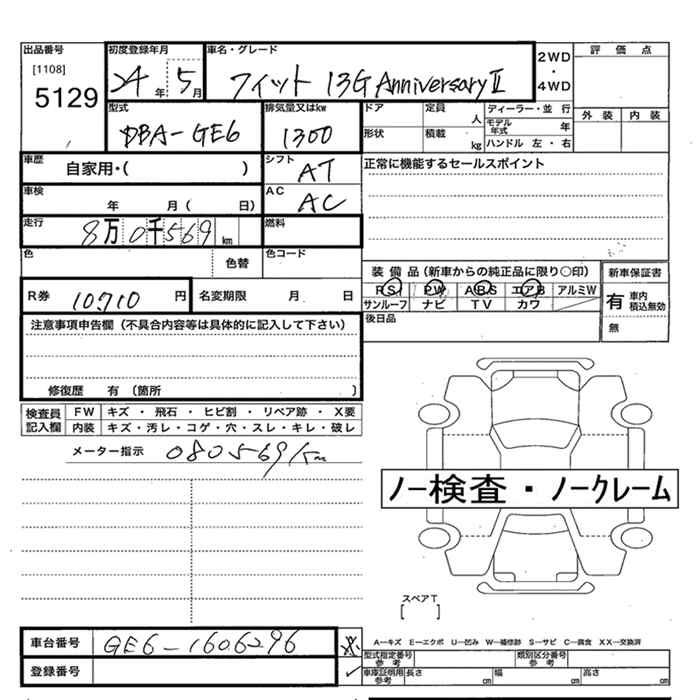 出品番号 初度登録年月 車名・グレード 2WD ・ 4WD 評価点
[1108]
5129 24年 5月 フィット 13G Anniversary II
型式 排気量又はkw ドア 定員 人 ディーラー・並行 外装 内装
DBA-GE6 1300 形状 積載 kg モデル年式 年
ハンドル 左・右
車歴 自家用・( ) シフト AT 正常に機能するセールスポイント
車検 年 月( 日) AC AC
走行 8万0千569km 燃料
色 色替 色コード
装備品(新車からの純正品に限り○印) 新車保証書
PS PW ABS エアB アルミW 有 車内積込無効
サンルーフ ナビ TV カワ 無
R券 10,710円 名変期限 月 日
後日品
注意事項申告欄(不具合内容等は具体的に記入して下さい)
修復歴 有 (箇所 )
検査員記入欄 FW キズ・飛石・ヒビ割・リペア跡・X要
内装 キズ・汚レ・コゲ・穴・スレ・キレ・破レ
メーター指示 080569km
ノー検査・ノークレーム
スペアT
[ ]
車台番号 GE6-1606296
登録番号
A-キズ E-エクボ U-凹み W-補修跡 S-サビ C-腐食 XX-交換済
型式指定番号 参考 類別区分番号 参考
車庫証明用 参考 長さ cm 幅 cm 高さ cm